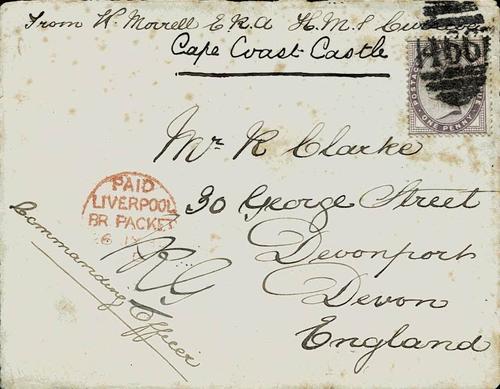 From W. Morrell E.R.A H.M.S
Cape Coast Castle
466
POSTAGE
ONE PENNY
Mr R Clarke
30 George Street
Devonport
Devon
England
PAID
LIVERPOOL
BR PACKET
Commanding Officer